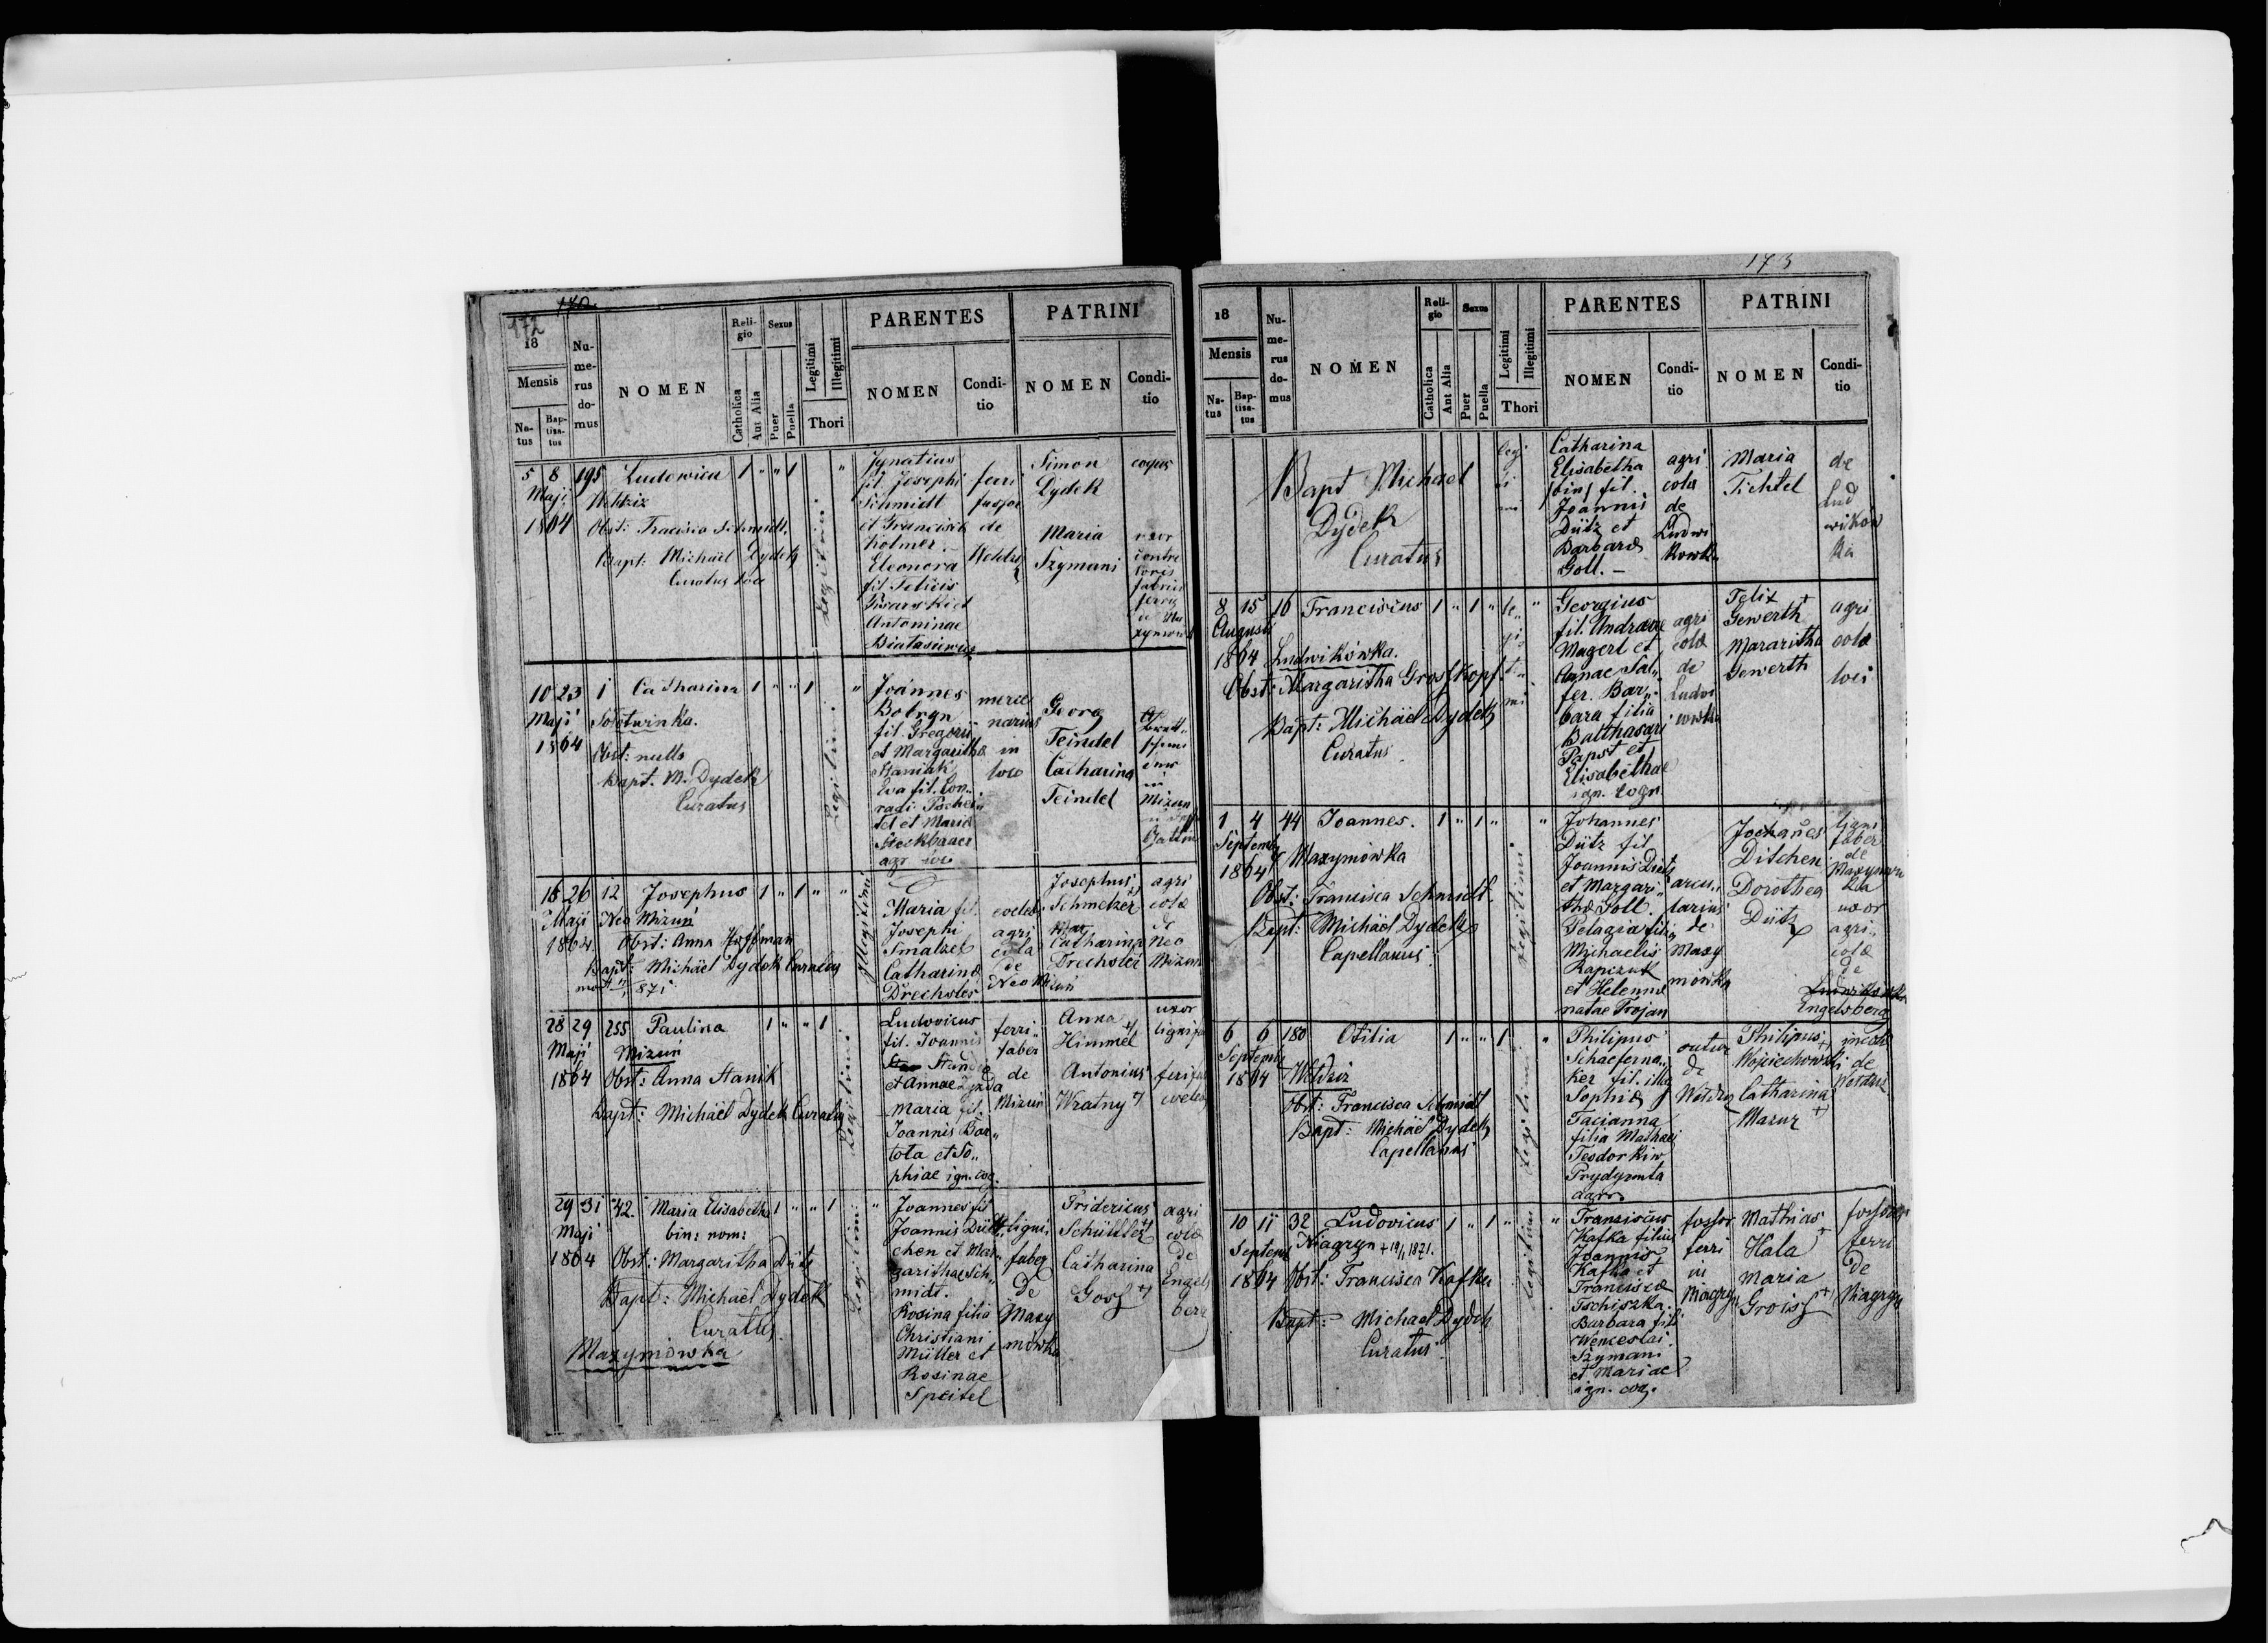 172
18
Mensis
Na-
tus
Bap-
tisa-
tus
Nu-
me-
rus
do-
mus
NOMEN
Reli-
gio
Catholica
Aut Alia
Sexus
Puer
Puella
Legitimi
Illegitimi
Thori
PARENTES
NOMEN
Condi-
tio
PATRINI
NOMEN
Condi-
tio
5 8 195 Ludovica 1 " " 1 "
Maji
1864
Obst: Schmidt
Bapt: Michael Dydek
Curatus loci
Legitimi
Ignatius
fil. Josephi
Schmidt
et
Kolmer.
Eleonora
fil. Felicis
et
Antoninae
ferri
fusor
de
Simon
Dydek
Maria
Szymani
uxor
10 23 1 Catharina 1 " " 1 "
Maji
1864
Obst: nulla
Bapt. M. Dydek
Curatus
Legitimi
Joannes
Bobryn
fil. Gregorii
et Margaritha
Eva fil. Con-
radi
et Maria
Steckbauer
agr loco
merce
narius
in
loco
Georg
Teindel
Catharina
Teindel
in
Mizun
18 26 12 Josephus 1 " 1 " "
Maji Neo Mizuń
1864 Obst: Anna Hoffman
Bapt: Michaël Dydek Curatus
1871
Illegitimi
Maria fil.
Josephi
Smalzel
Catharina
Drechsler
coeleb
agri
cola
de
Neo Mizuń
Josephus
Schmelzer
Catharina
Drechsler
agri
colæ
de
Neo
Mizun
28 29 255 Paulina 1 " " 1
Maji Mizuń
1864 Obst: Anna Stanik
Bapt: Michaël Dydek Curatus
Legitimi
Ludovicus
fil. Joannis
et Annae
Maria fil.
Joannis Bar„
tola et So„
phiae ign. cog.
ferri„
faber
de
Mizuń
Anna
Himmel
Antonius
Wratny
uxor
29 31 42. Maria Elisabetha 1 " " 1 "
Maji bin: nom:
1864 Obst: Margaritha Dütz
Bapt: Michaël Dydek
Curatus
Maxymówka
Legitimi
Joannes fil
Joannis
chen et Mar„
garithae Sch„
midt.
Rosina filia
Christiani
Müller et
Rosinae
Speitel
ligni„
faber
de
Maxy
mówka
Fridericus
Schüttler
Catharina
Goss
agri
colæ
de
Engels
berg
173
18
Mensis
Na-
tus
Bap-
tisa-
tus
Nu-
me-
rus
do-
mus
NOMEN
Reli-
gio
Catholica
Aut Alia
Sexus
Puer
Puella
Legitimi
Illegitimi
Thori
PARENTES
NOMEN
Condi-
tio
PATRINI
NOMEN
Condi-
tio
Bapt Michael
Dydek
Curatus
Catharina
Elisabetha
fil.
Joannis
Dütz et
Barbara
Goll. –
agri
cola
de
Ludwi
kowka
Maria
Tichtel
de
Lud
wikow
ka
8 15 16 Franciscus 1 " 1 " "
Augusti
1864 Ludwikówka.
Obst: Margaritha Grosskopf.
Bapt: Michaël Dydek
Curatus
Georgius
fil. Andreae
Magerl et
Annae Sal„
fer. Bar„
bara filia
Balthasari
Papst et
Elisabethae
ign. cogn
agri
colæ
de
Ludwi
Felix
Gewerth
Mararitha
Gewerth
agri
colæ
loci
1 4 44 Joannes. 1 " 1 " "
Septemb
1864 Maxymówka
Obst: Francisca Schmidt.
Bapt: Michaël Dydek
Capellanus.
Legitimi
Johannes
Dütz fil
Joannis Dütz
et Margari„
thæ Goll.
Pelagia filia
Michaelis
Kapczuk
et Helennæ
natae Trojan
arcu„
larius
de
Maxy
mówka
Ditchen
Dorothea
Dütz
ligni
faber
de
uxor
agri„
colæ
de
Engelsberg
6 6 180 Otilia 1 " " 1 "
Septemb
1864
Obst: Francisca Schmidt
Bapt: Michaël Dydek
Capellanus
Legitimi
Philipus
Schaeferna„
ker fil. illeg
Sophiæ
Tacianna
filia Mathaei
Teodorkiw
de
Philipus
Wojciechowski
Catharina
Mazur
de
10 11 32 Ludovicus 1 " 1 " "
Septemb Niagryn + 19/1 1871.
1864 Obst: Francisca Kafka
Bapt: Michael Dydek
Curatus
Legitimi
Franciscus
Kafka filius
Joannis
Kafka et
Franciscæ
Tschiszka.
Barbara fil
Wenceslai
Szymani
et Mariae
ign. cog.
fossor
ferri
in
Niagryn
Mathias
Hala
Maria
Groiss
ferri
de
Niagryn